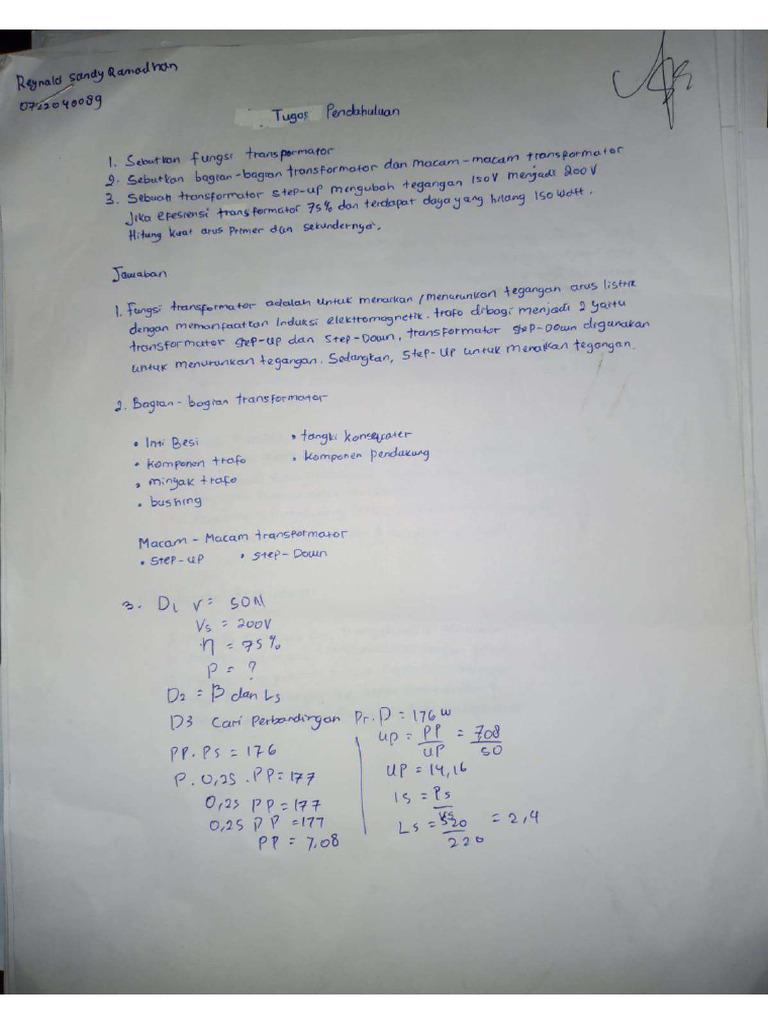 Reynald Sandy Ramadhan
0722040089
Tugas Pendahuluan
1. Sebutkan fungsi transformator
2. Sebutkan bagian-bagian transformator dan macam-macam transformator
3. Sebuah transformator step-up mengubah tegangan 150V menjadi 200V
Jika efesiensi transformator 75% dan terdapat daya yang hilang 150 watt.
Hitung kuat arus Primer dan sekundernya.
Jawaban
1. Fungsi transformator adalah untuk menaikan/menurunkan tegangan arus listrik
dengan memanfaatkan Induksi elektromagnetik. trafo dibagi menjadi 2 yaitu
transformator step-up dan Step-Down, transformator step-Down digunakan
untuk menurunkan tegangan. Sedangkan, Step-Up untuk menaikan tegangan.
2. Bagian-bagian transformator
• Inti Besi
• komponen trafo
• minyak trafo
• bushing
• tangki
• komponen pendukung
Macam - Macam transformator
• Step-up • Step-Down
3. D1 V = 50N
Vs = 200V
η = 75%
P = ?
D2 = β dan Ls
D3 Cari Perbandingan Pr. P = 176 W
PP. Ps = 176
P. 0,25 . PP = 177
0,25 PP = 177
0,25 PP = 177
PP = 7,08
UP = PP/UP = 708/50
UP = 14,16
Is = Ps/Vs
Ls = 520/220 = 2,4